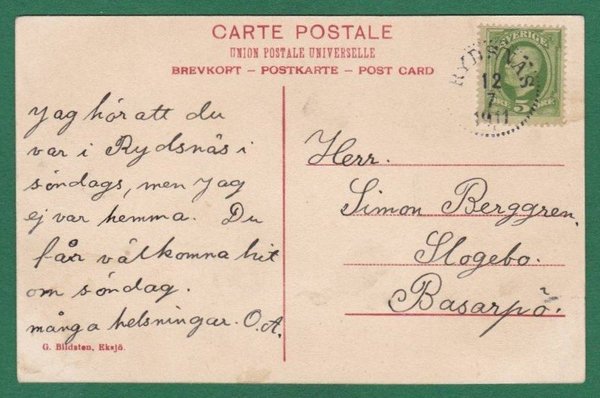 CARTE POSTALE
UNION POSTALE UNIVERSELLE
BREVKORT – POSTKARTE – POST CARD
SVERIGE
RYDSNÄS
12
7
1911
5
Jag hör att du
var i Rydsnäs i
söndags, men jag
ej var hemma. Du
får välkomna hit
om söndag.
många helsningar. O.A.
Herr.
Simon Berggren.
Slogebo.
Basarpö.
G. Bildsten, Eksjö.